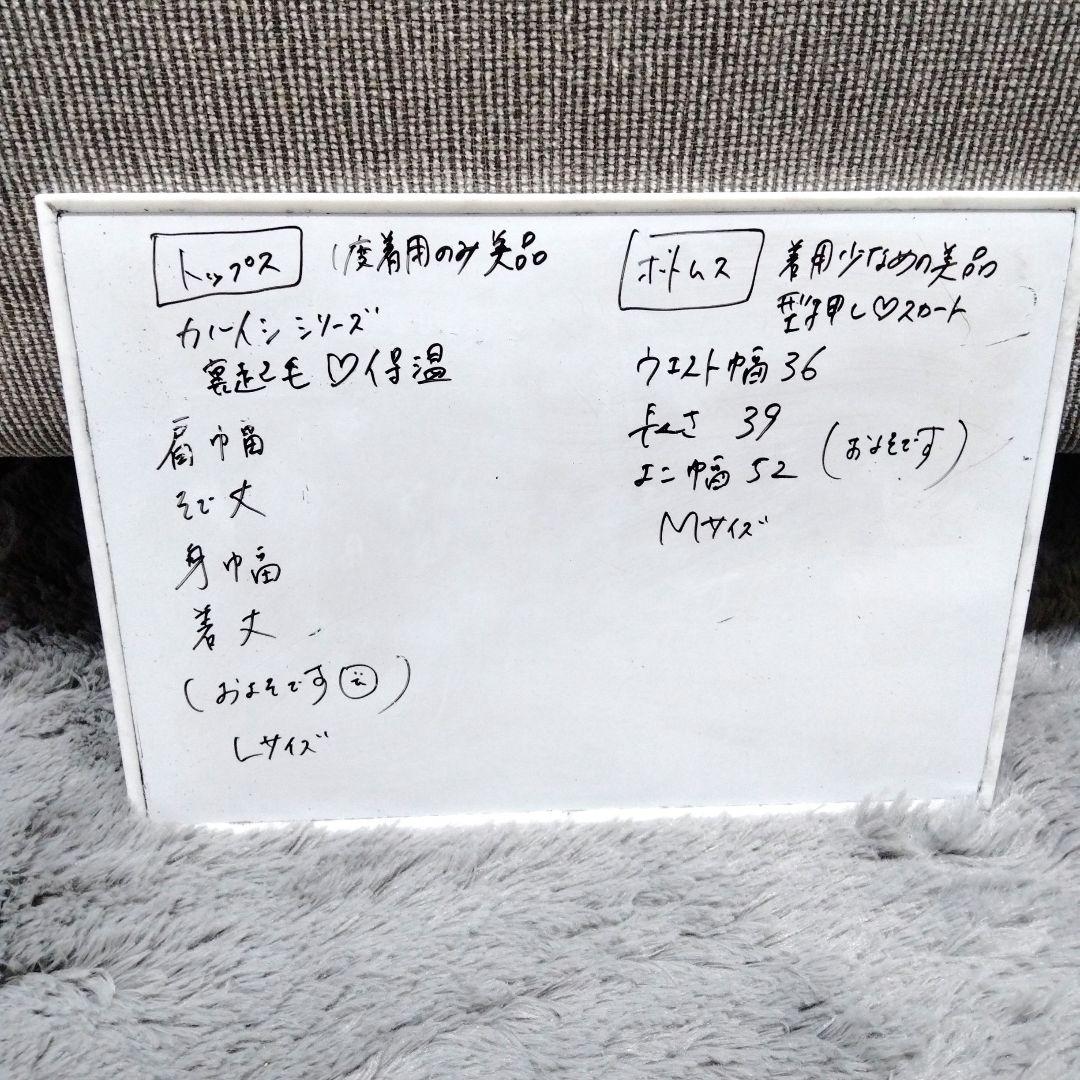 トップス 1度着用のみ美品
シリーズ
裏起毛♡保温
肩巾畐
そで丈
身巾畐
着丈
(およそです)
Lサイズ
ボトムス 着用少なめの美品
型押し♡スカート
ウエスト幅 36
長さ 39
よこ幅 52
(およそです)
Mサイズ